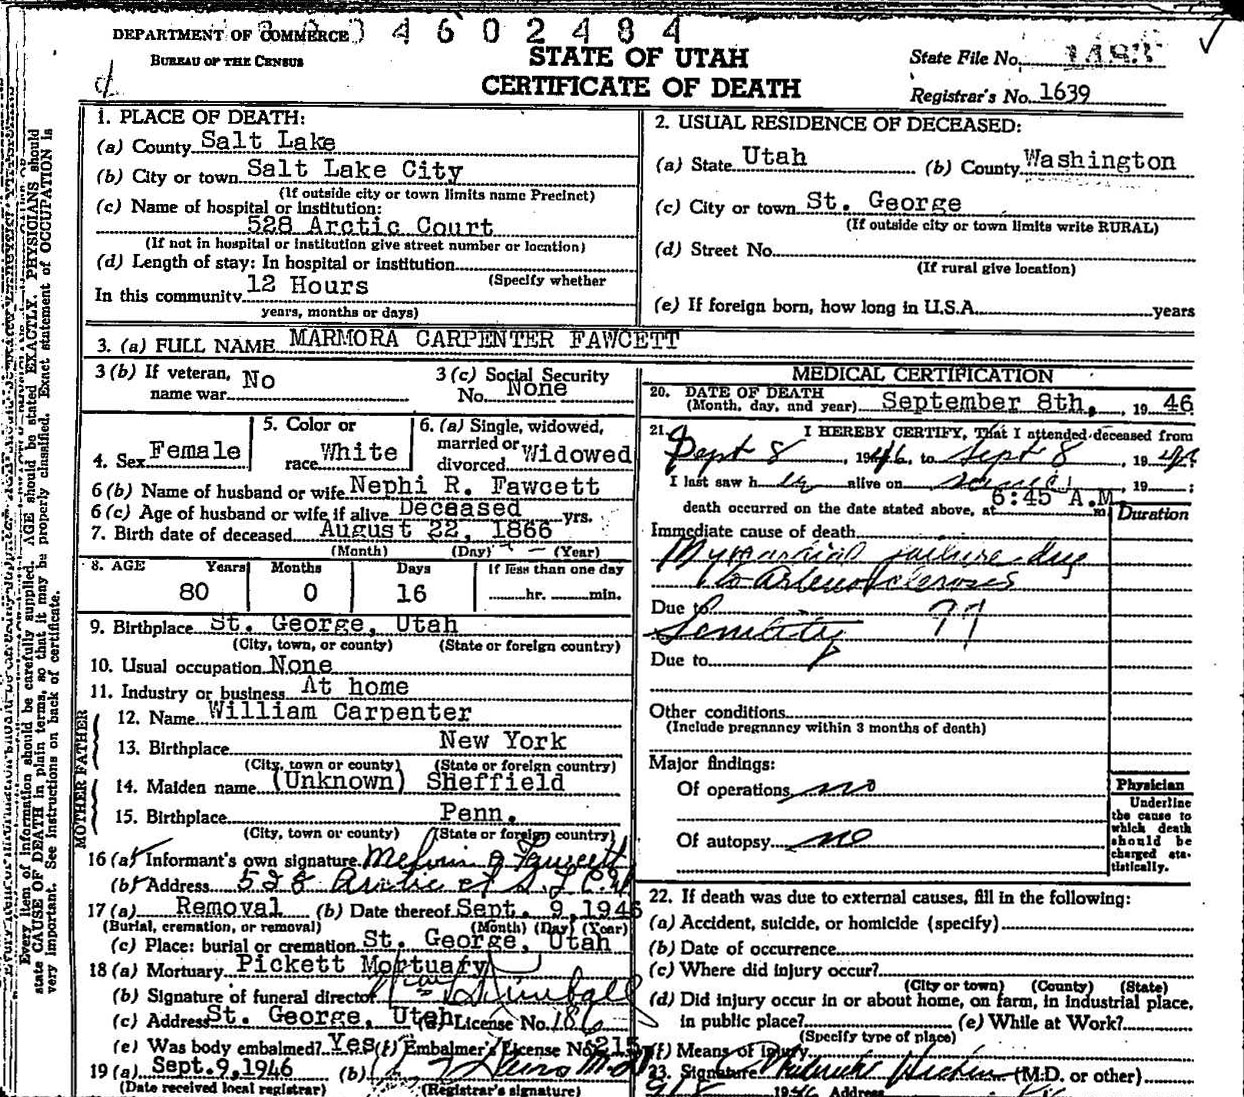 DEPARTMENT OF COMMERCE 4 6 0 2 4 8 4
BUREAU OF THE CENSUS
STATE OF UTAH
CERTIFICATE OF DEATH
State File No.
Registrar's No. 1639
1. PLACE OF DEATH:
(a) County Salt Lake
(b) City or town Salt Lake City
(If outside city or town limits name Precinct)
(c) Name of hospital or institution:
528 Arctic Court
(If not in hospital or institution give street number or location)
(d) Length of stay: In hospital or institution
(Specify whether
In this community 12 Hours
years, months or days)
2. USUAL RESIDENCE OF DECEASED:
(a) State Utah (b) County Washington
(c) City or town St. George
(If outside city or town limits write RURAL)
(d) Street No.
(If rural give location)
(e) If foreign born, how long in U.S.A. years
3. (a) FULL NAME MARMORA CARPENTER FAWCETT
3 (b) If veteran, name war No
3 (c) Social Security No. None
4. Sex Female
5. Color or race White
6. (a) Single, widowed, married or divorced Widowed
6 (b) Name of husband or wife Nephi R. Fawcett
6 (c) Age of husband or wife if alive Deceased yrs.
7. Birth date of deceased August 22, 1866
(Month) (Day) (Year)
8. AGE Years Months Days If less than one day
80 0 16 hr. min.
9. Birthplace St. George, Utah
(City, town, or county) (State or foreign country)
10. Usual occupation None
11. Industry or business At home
FATHER
12. Name William Carpenter
13. Birthplace New York
(City, town or county) (State or foreign country)
MOTHER
14. Maiden name (Unknown) Sheffield
15. Birthplace Penn.
(City, town or county) (State or foreign country)
16 (a) Informant's own signature Fawcett
(b) Address 528 Arctic ct S.L.C.
17 (a) Removal (b) Date thereof Sept. 9, 1946
(Burial, cremation, or removal) (Month) (Day) (Year)
(c) Place: burial or cremation St. George, Utah
18 (a) Mortuary Pickett Mortuary
(b) Signature of funeral director
(c) Address St. George, Utah (d) License No. 186
(e) Was body embalmed? Yes (f) Embalmer's License No. 215
19 (a) Sept.9,1946 (b)
(Date received local registrar) (Registrar's signature)
MEDICAL CERTIFICATION
20. DATE OF DEATH
(Month, day, and year) September 8th, , 19 46
21. I HEREBY CERTIFY, That I attended deceased from
Sept 8, 1946, to Sept 8, 1946
I last saw her alive on , 19 ;
death occurred on the date stated above, at 6:45 A.M. m
Duration
Immediate cause of death
Myocardial failure due
to Arteriosclerosis
Due to
Senility
Due to
Other conditions
(Include pregnancy within 3 months of death)
Major findings:
Of operations no
Of autopsy no
Physician
Underline
the cause to
which death
should be
charged sta-
tistically.
22. If death was due to external causes, fill in the following:
(a) Accident, suicide, or homicide (specify)
(b) Date of occurrence
(c) Where did injury occur?
(City or town) (County) (State)
(d) Did injury occur in or about home, on farm, in industrial place,
in public place? (e) While at Work?
(Specify type of place)
(f) Means of injury
23. Signature (M.D. or other)
9/8 1946 Address
Every item of information should be carefully supplied. AGE should be stated EXACTLY. PHYSICIANS should
state CAUSE OF DEATH in plain terms, so that it may be properly classified. Exact statement of OCCUPATION is
very important. See instructions on back of certificate.